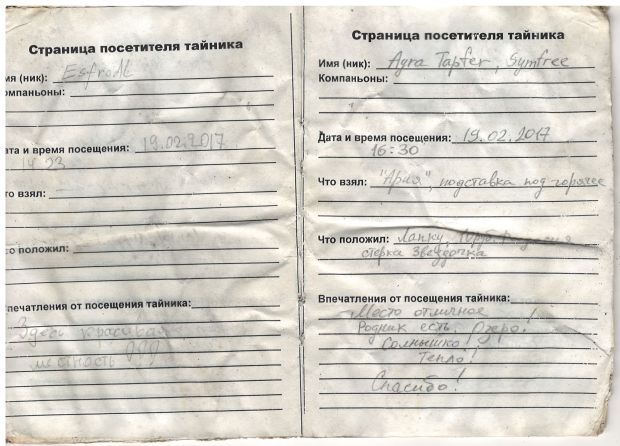 Страница посетителя тайника
мя (ник): Esfrodl
омпаньоны:
ата и время посещения: 19.02.2017
14 23
то взял:
о положил:
печатления от посещения тайника:
Здесь красивая
местность !!!
Страница посетителя тайника
Имя (ник): Agra Tapfer, Symfree
Компаньоны:
Дата и время посещения: 19.02.2017
16:30
Что взял: "Ария", подставка под горячее
Что положил: Лапку,
стерка Звездочка
Впечатления от посещения тайника:
Место отличное
Родник есть. Озеро!
Солнышко!
Тепло!
Спасибо!